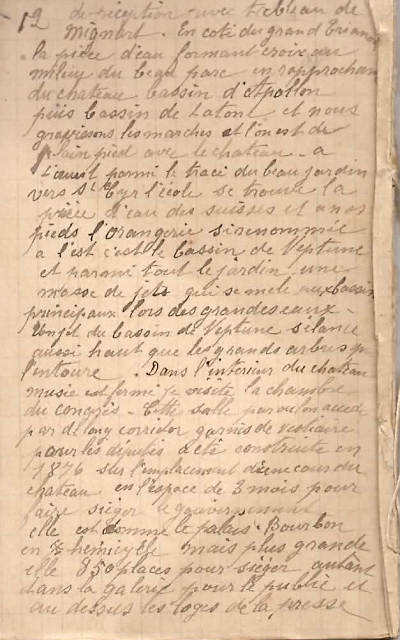 12 de réception avec tableau de
mignart. En coté du grand Trianon
la pièce d'eau formant croix au
milieu du beau parc en rapprochan
du chateau bassin d'Apollon
puis bassin de Latone et nous
gravissons les marches et l'on est de
plain pied avec le chateau. a
l'ouest parmi le tracé du beau jardin
vers St Cyr l'école se trouve la
pièce d'eau des suisses et a nos
pieds l'orangerie si renommée
a l'est c'est le bassin de Neptune
et parmi tout le jardin une
masse de jets qui se mele aux bassin
principaux lors des grandes eaux -
Un jet du bassin de Neptune s'élance
aussi haut que les grands arbres qui
l'entoure. Dans l'intérieur du chateau
musée est fermé je visite la chambre
du congrès - Cette salle par ou l'on accède
par de long corridor garnis de vestiaire
pour les députés a été construite en
1876 sur l'emplacement d'une cour du
chateau en l'espace de 3 mois pour
faire siéger le gouvernement
elle est comme le palais Bourbon
en hemicycle mais plus grande
elle 850 places pour siéger autant
dans la galerie pour le public et
au dessus les loges de la presse